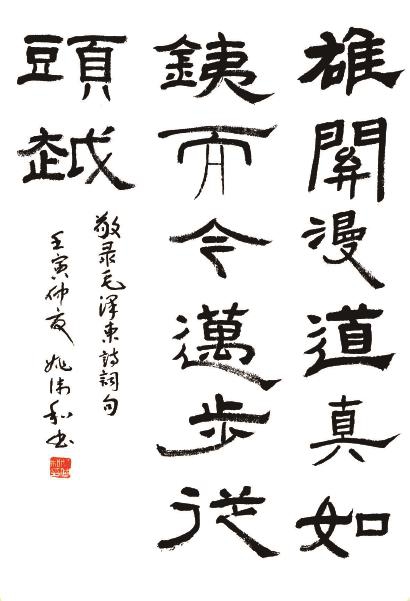 雄關漫道真如
銕而今邁步從
頭越
敬录毛泽東詩詞句
壬寅仲夏 姚 和书